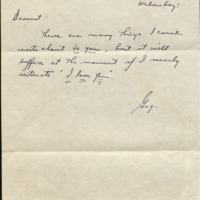 Wednesday!
Dearest!
There are many things I could
write about to you, but it will
suffice at the moment if I merely
reiterate "I love you"